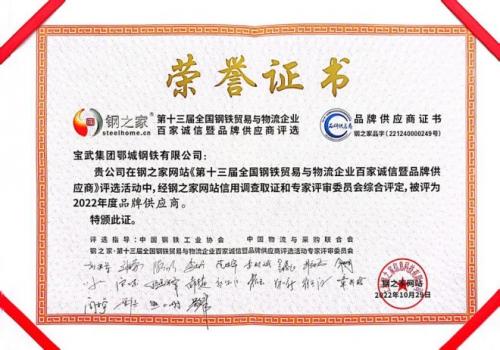 荣誉证书
钢之家
steelhome.cn
第十三届全国钢铁贸易与物流企业
百家诚信暨品牌供应商评选
品牌供应商
品牌供应商证书
钢之家品字(221240000249号)
宝武集团鄂城钢铁有限公司:
贵公司在钢之家网站《第十三届全国钢铁贸易与物流企业百家诚信暨品牌供
应商》评选活动中,经钢之家网站信用调查取证和专家评审委员会综合评定,被评为
2022年度品牌供应商。
特颁此证。
评选指导:中国钢铁工业协会 中国物流与采购联合会
钢之家·第十三届全国钢铁贸易与物流企业百家诚信暨品牌供应商评选活动专家评审委员会
钢之家网站
2022年10月29日